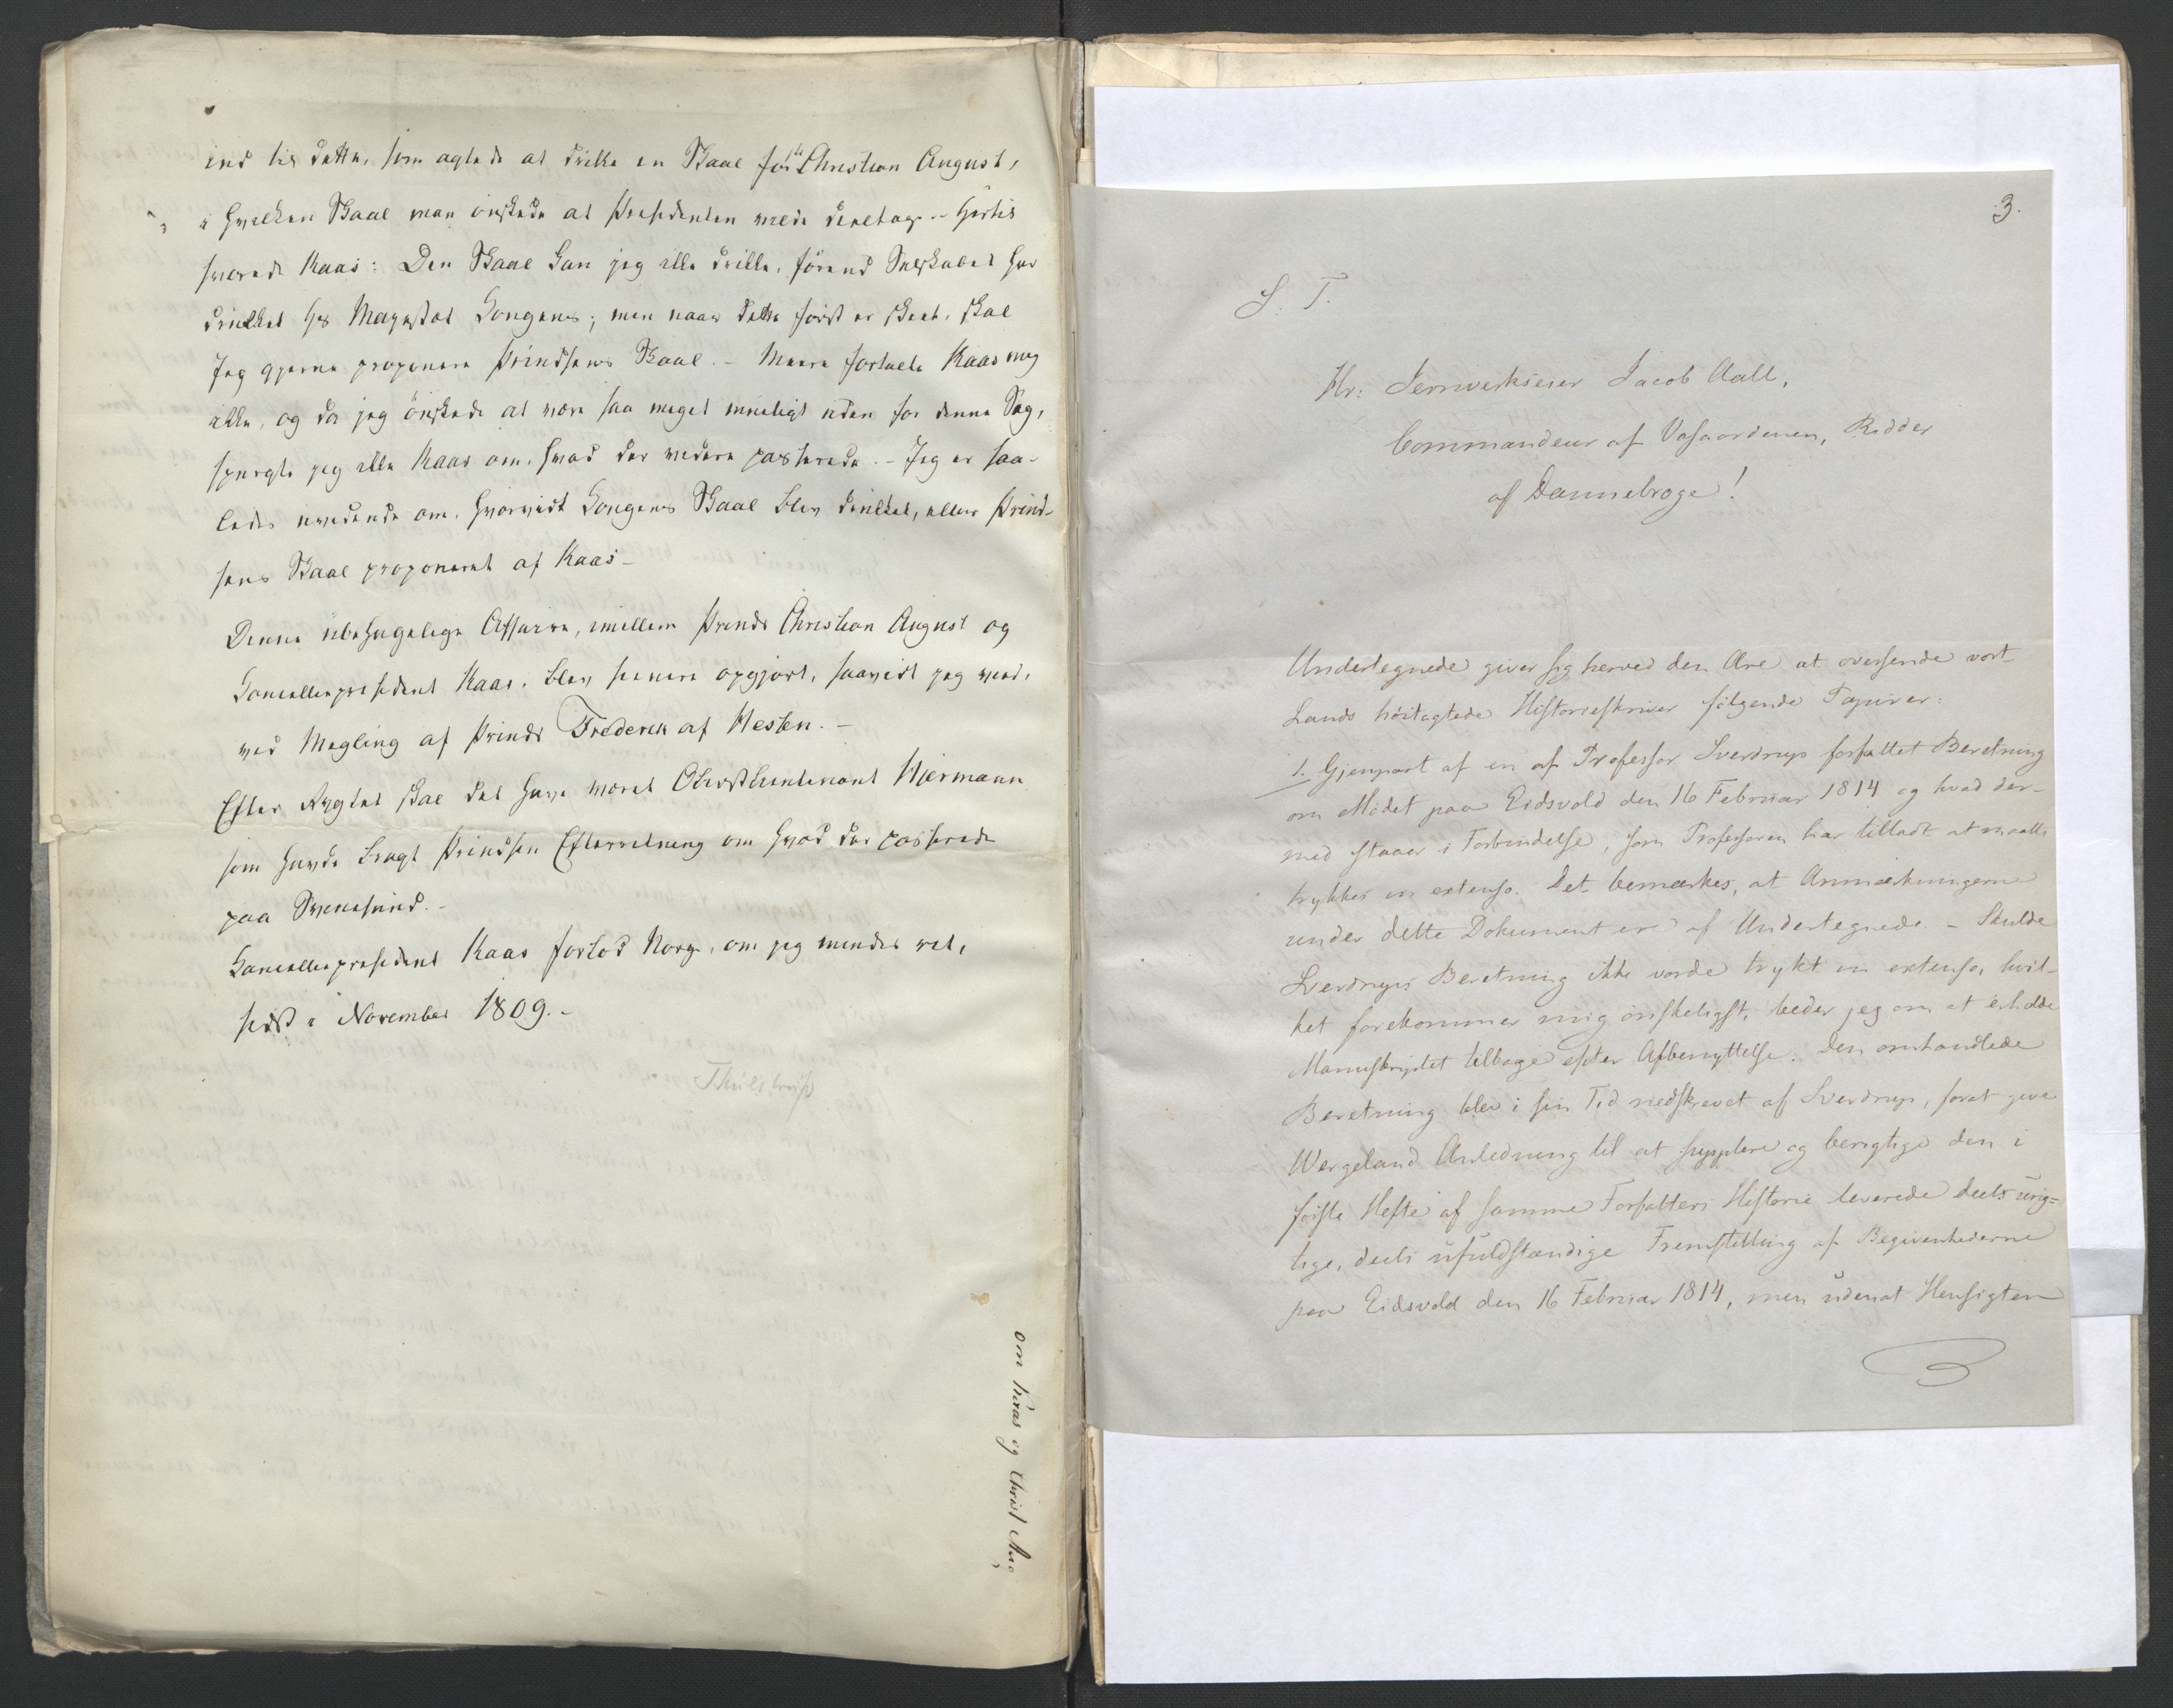 ind til dette, som agtede at drikke en Skaal for Christian August,
i hvilken Skaal man önskede at Præsidenten vilde deeltage – hertil
svarede Kaas: Den Skaal kan jeg ikke drikke, förend Selskabet har
drukket hs Majestæt Kongens; men naar dette först er skeet, skal
Jeg gjerne proponere Prindsens Skaal. – Meere fortalte Kaas mig
ikke, og da jeg önskede at være saa meget mueligt uden for denne Sag,
spurgte jeg ikke Kaas om, hvad der videre passerede. – Jeg er saa-
ledes uvidende om, hvorvidt Kongens Skaal blev drukket, eller Prind-
sens Skaal proponeret af Kaas –
Denne übehagelige Affaire, imellem Prinds Christian August og
Cancellie præsident Kaas, blev senere opgjort, saavidt jeg veed,
ved Megling af Prinds Frederich af Hessen. –
Efter Rygtet skal det have været Oberstlieutenant Hiermann
som havde bragt Prindsen Efterretning om hvad der passerede
paa Svinesund. –
Cancellie præsident Kaas forlod Norge, om jeg mindes ret,
sidst i November 1809. –
Thulstrup
om Kaas og Christ Aug
3.
S. T.
Hr: Jernverkseier Jacob Aall,
Commandeur af Vasaordenen, Ridder
af Dannebroge!
Undertegnede giver sig herved den Ære at oversende vort
Lands höitagtede Historieskriver fölgende Papirer:
1. Gjenpart af en af Professor Sverdrup forfattet Beretning
om Mödet paa Eidsvold den 16 Februar 1814 og hvad der-
med staaer i Forbindelse, som Professoren har tilladt at maatte
trykkes in extenso. Det bemærkes, at Anmærkningerne
under dette Dokument ere af Undertegnede. – Skulde
Sverdrups Beretning ikke vorde trykt in extenso, hvil-
ket forekommer mig önskeligst, beder jeg om at erholde
Manuskriptet tilbage efter Afbenyttelse. Den omhandlede
Beretning blev i sin Tid nedskrevet af Sverdrup, forat give
Wergeland Anledning til at supplere og berigtige den i
förste Hefte af samme Forfatters Historie leverede deels urig-
tige, deels ufuldstændige Fremstilling af Begivenhederne
paa Eidsvold den 16 Februar 1814, men udenat Hensigten